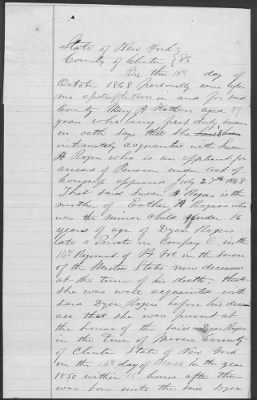 State of New York }
County of Clinton } SS
On this 10th day of
October 1868 personally came before
me a in and for said
County Mary A aged 37
years who being first duly sworn
on oath says that she
intimately acquainted with Susan
A Rogers who is an applicant for
arrears of Pension under act of
Congress approved July 27th 1868
That said Susan A Rogers is the
mother of Esther A Rogers who
was the minor child under 16
years of age of Dyer Rogers
late a Private in Company C. in the
16th Regiment of Vt Vol in the service
of the United States now deceased
at the time of his death; that
she was well acquainted with
said Dyer Rogers before his dece
ase that she was present at
the house of the said Dyer Rogers
in the town of Mooers County
of Clinton State of New York
on the 16th day of March in the year
1850 within hours after there
was born unto the said Dyer